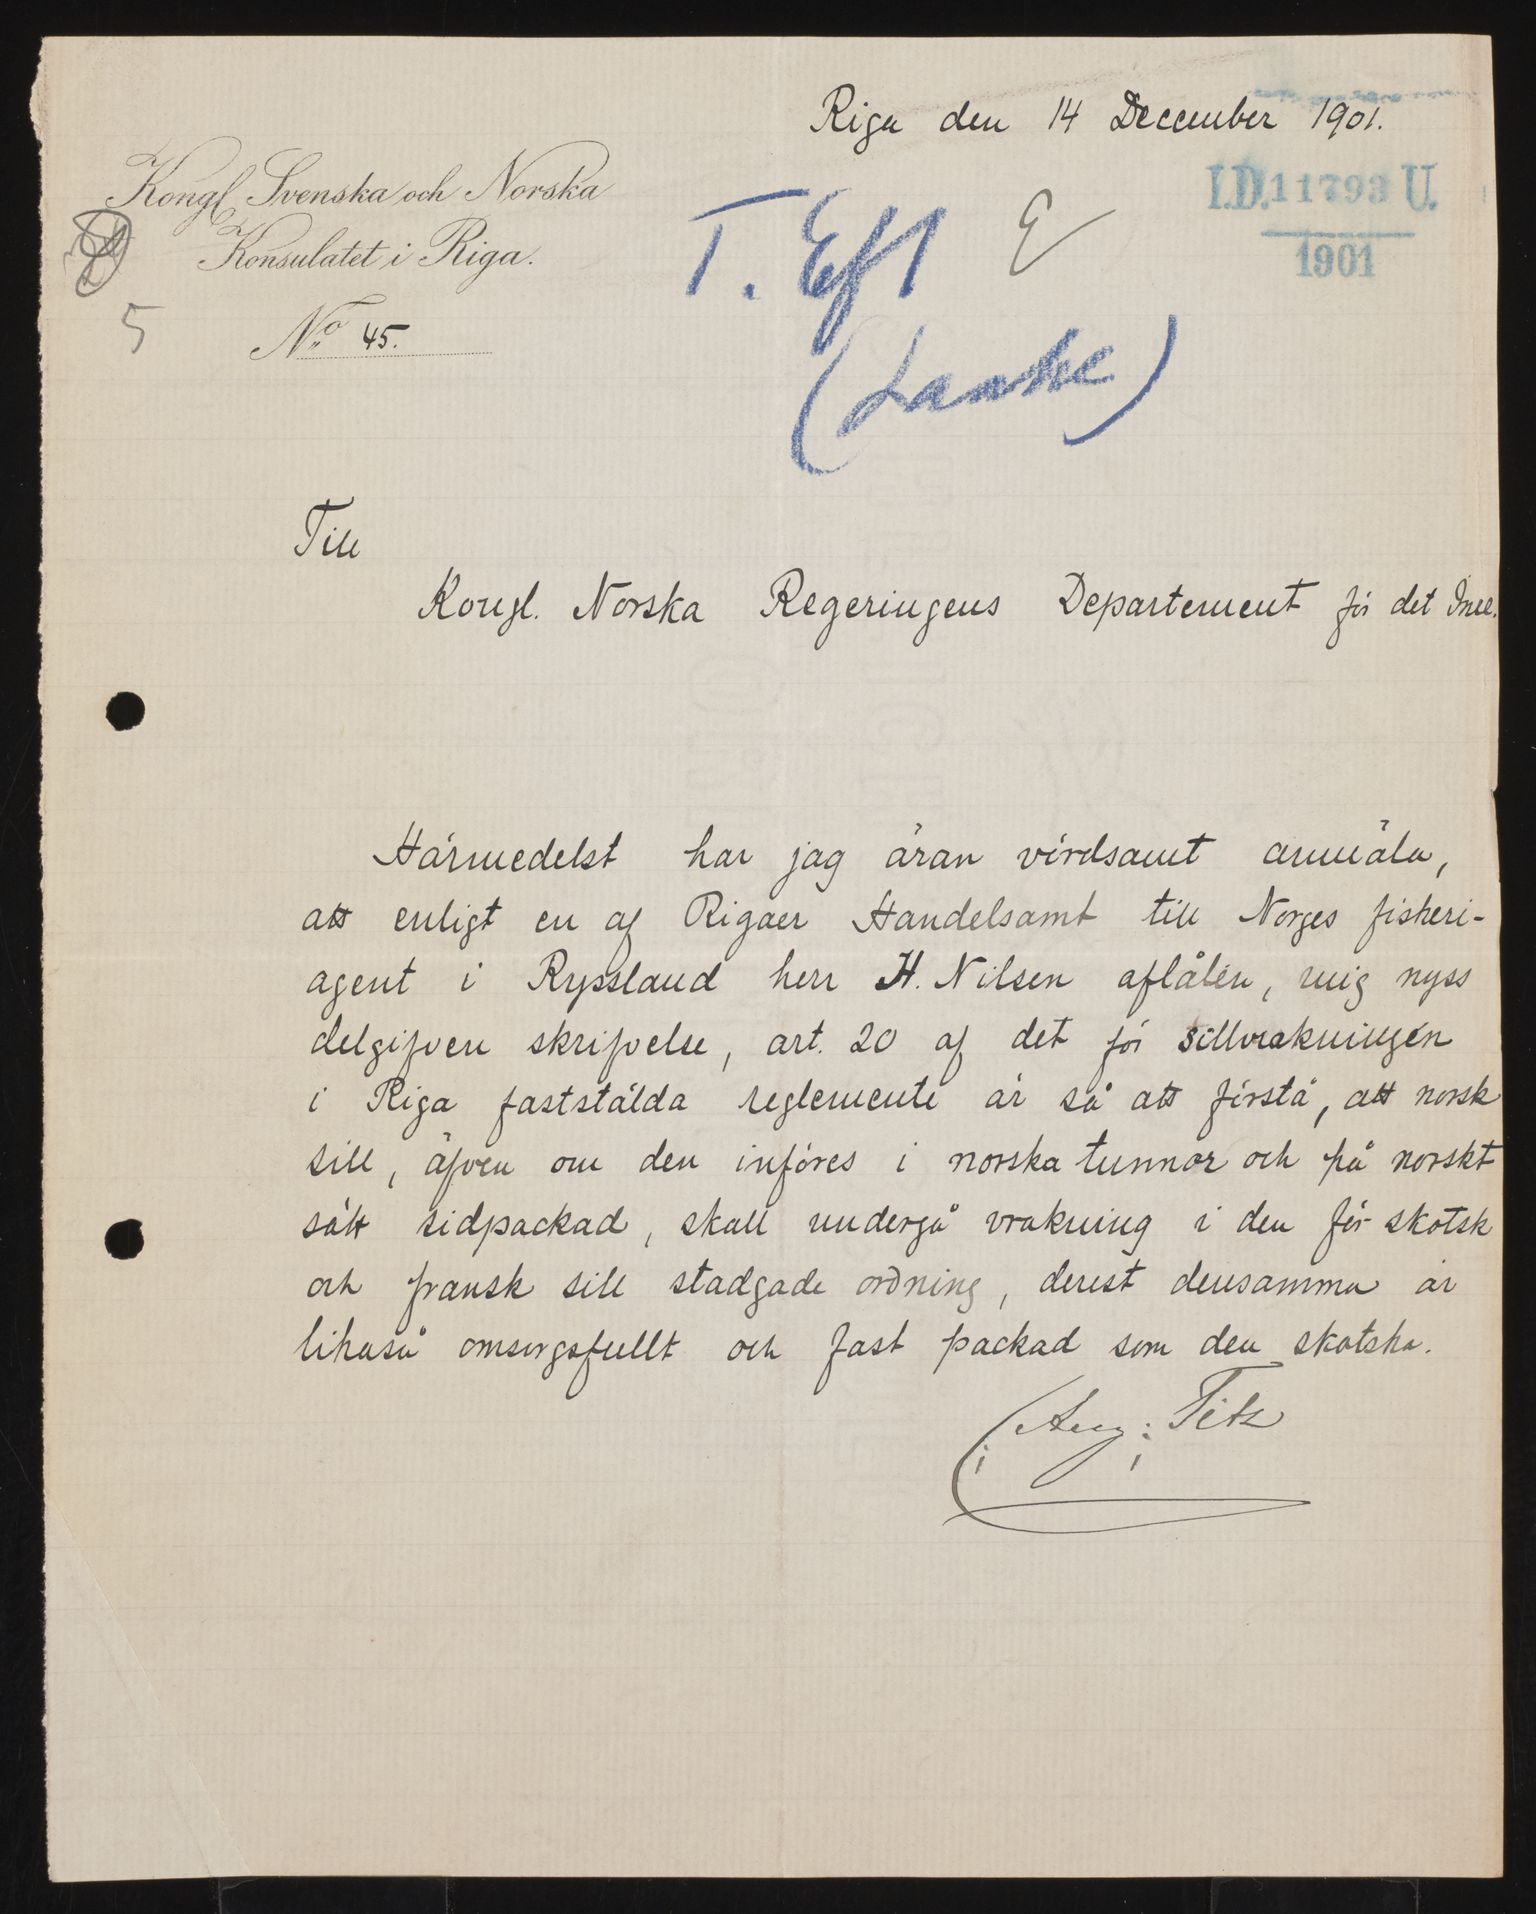 Riga den 14 December 1901.
Kongl. Svenska och Norska
Konsulatet i Riga.
No 45.
I.D. 11793 U.
1901
T. Eft E
5
Till
Kongl. Norska Regeringens Departement för det Inre.
Härmedelst har jag äran vördsamt anmäla,
att enligt en af Rigaer Handelsamt till Norges fiskeri-
agent i Ryssland herr H. Nilsen aflåten, mig nyss
delgifven skrifvelse, art. 20 af det för sillvrakningen
i Riga faststälda reglemente är så att förstå, att norsk
sill, äfven om den införes i norska tunnor och på norskt
sätt sidpackad, skall undergå vrakning i den för skotsk
och fransk sill stadgade ordning, derest densamma är
likaså omsorgsfullt och fast packad som den skotska.
Aug: Titz